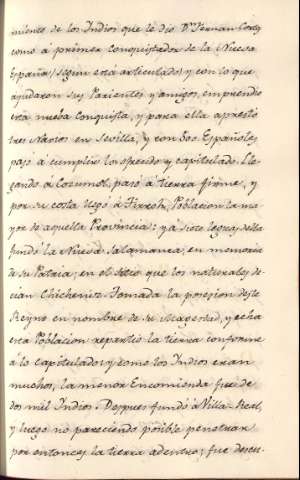 miento de los Indios que le dio Dn. Fernan Cortes
como á primer conquistador de la Nueva
España (segun está articulado) y con lo que
ayudaron sus Parientes y amigos, emprendio
esta nueba conquista, y para ella aprestó
tres Navios en Sevilla, y con 500 Españoles
pasó á cumplir lo ofrecido y capitulado. Lle-
gando á Cozumel, pasó á tierra firme, y
por su costa llegó á Tirroh, Poblacion la ma-
yor de aquella Provincia: y á siete leguas della
fundó la Nueva Salamanca, en memoria
de su Patria, en el sitio que los naturales de-
cian Chicheniz. Tomada la posesion deste
Reyno en nombre de su Magestad, y echa
esta Poblacion repartió la tierra conforme
á lo capitulado: y como los Indios eran
muchos, la menor Encomienda fue de
dos mil Indios. Despues fundó á Villa-Real,
y luego no pareciendo posible penetrar
por entonces la tierra adentro; fue descu-